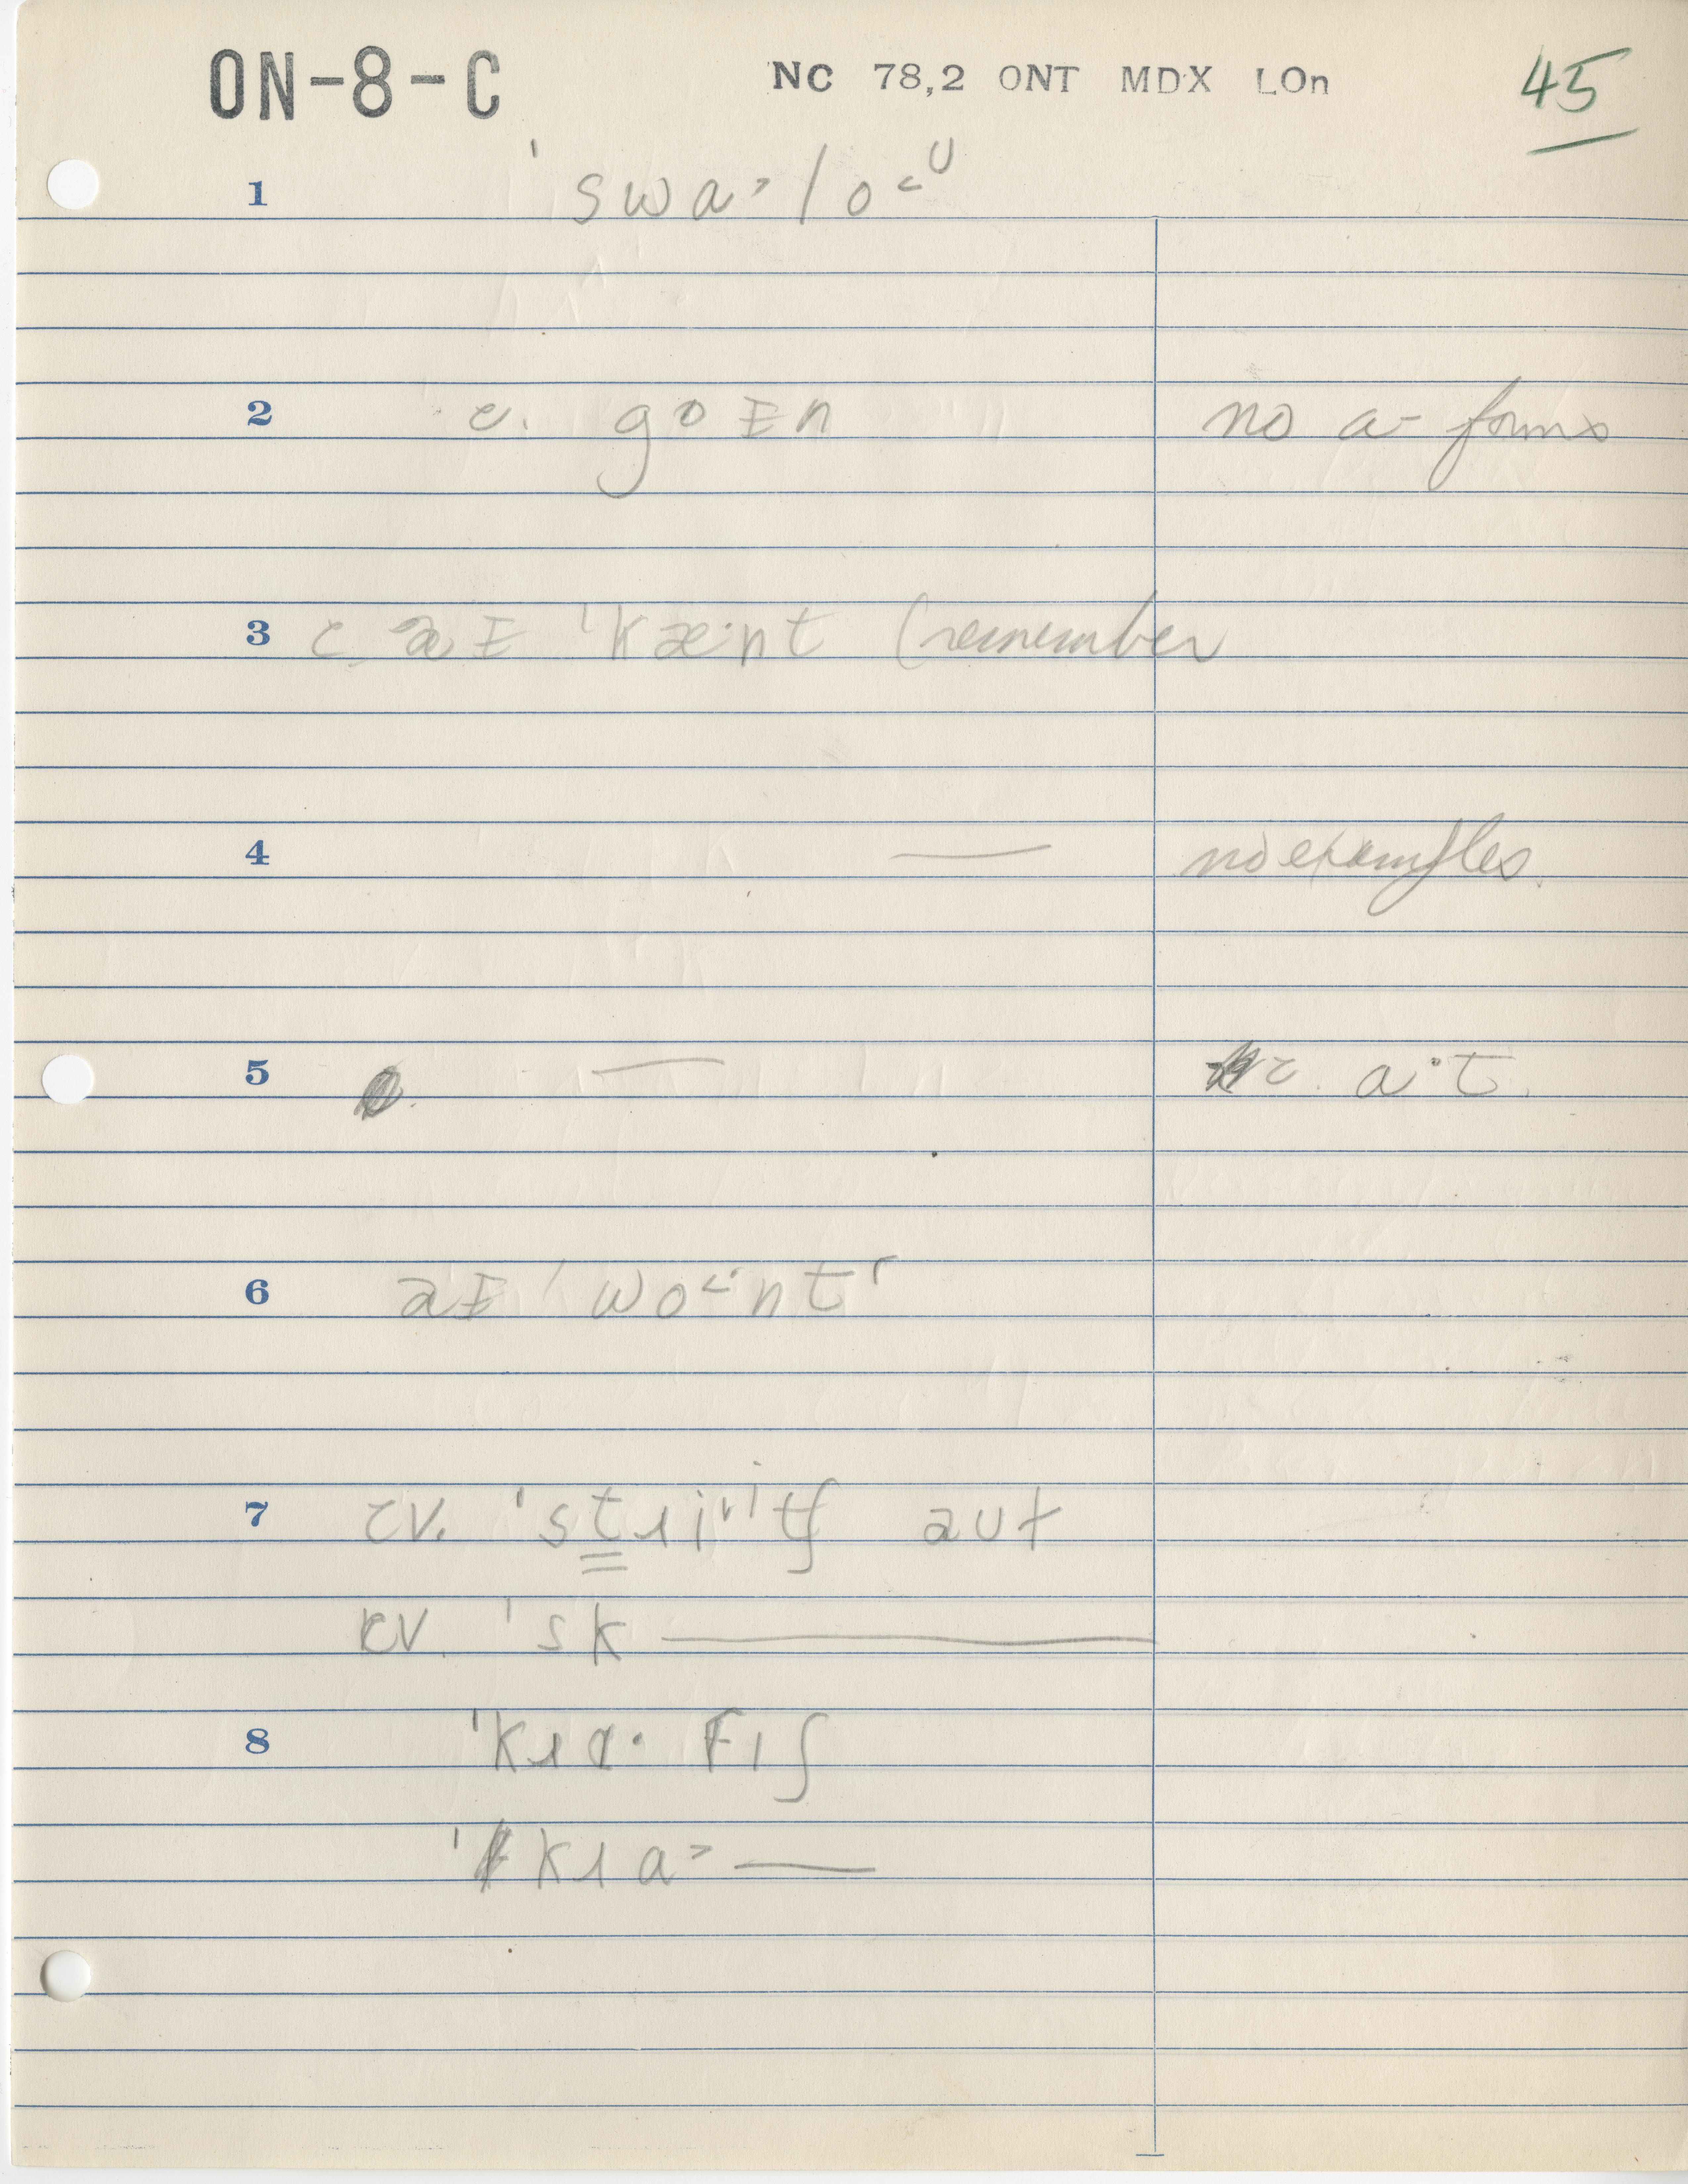 ON-8-C NC 78,2 ONT MDX LOn 45
1 ˈswa˃lo˂ᵁ
2 c. goɪn no a- forms
3 c. aɪ ˈkæ·nt (remember
4 — no examples.
5 — c. a·t.
6 aɪ ˈwo˂·nt
7 cv. ˈstɹi·tʃ aut
cv. ˈsk —
8 ˈkɹɑ·fɪʃ
ˈkɹa˃ —